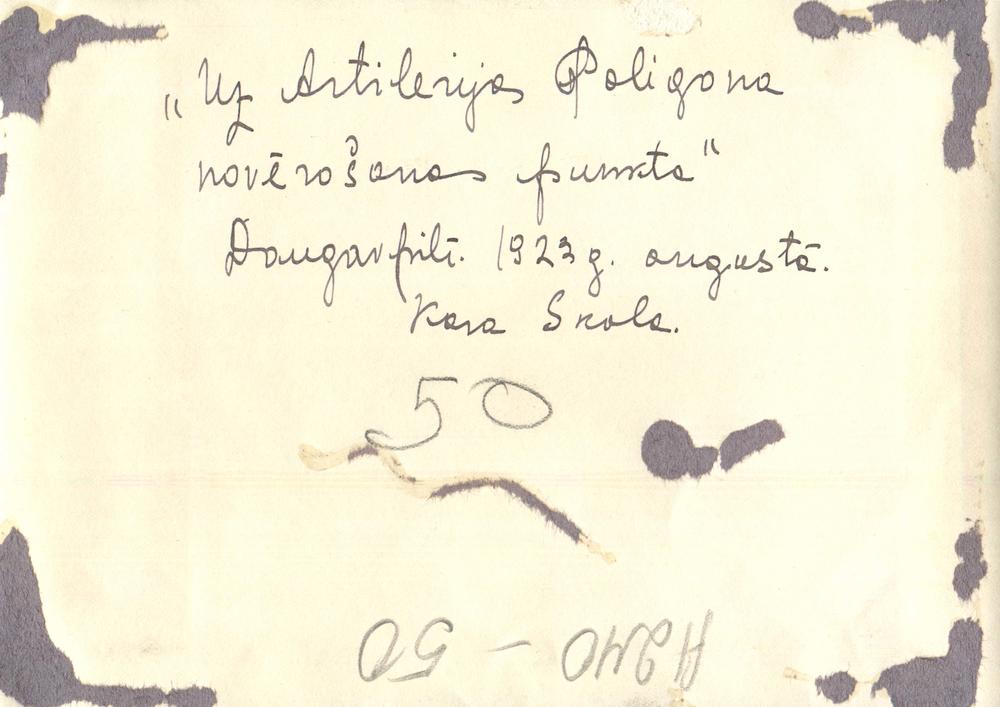 „Uz Artilerijas Poligona
novērošanas punkta“
Daugavpilī. 1923 g. augustā.
Kara Skola.
50
A240 - 50